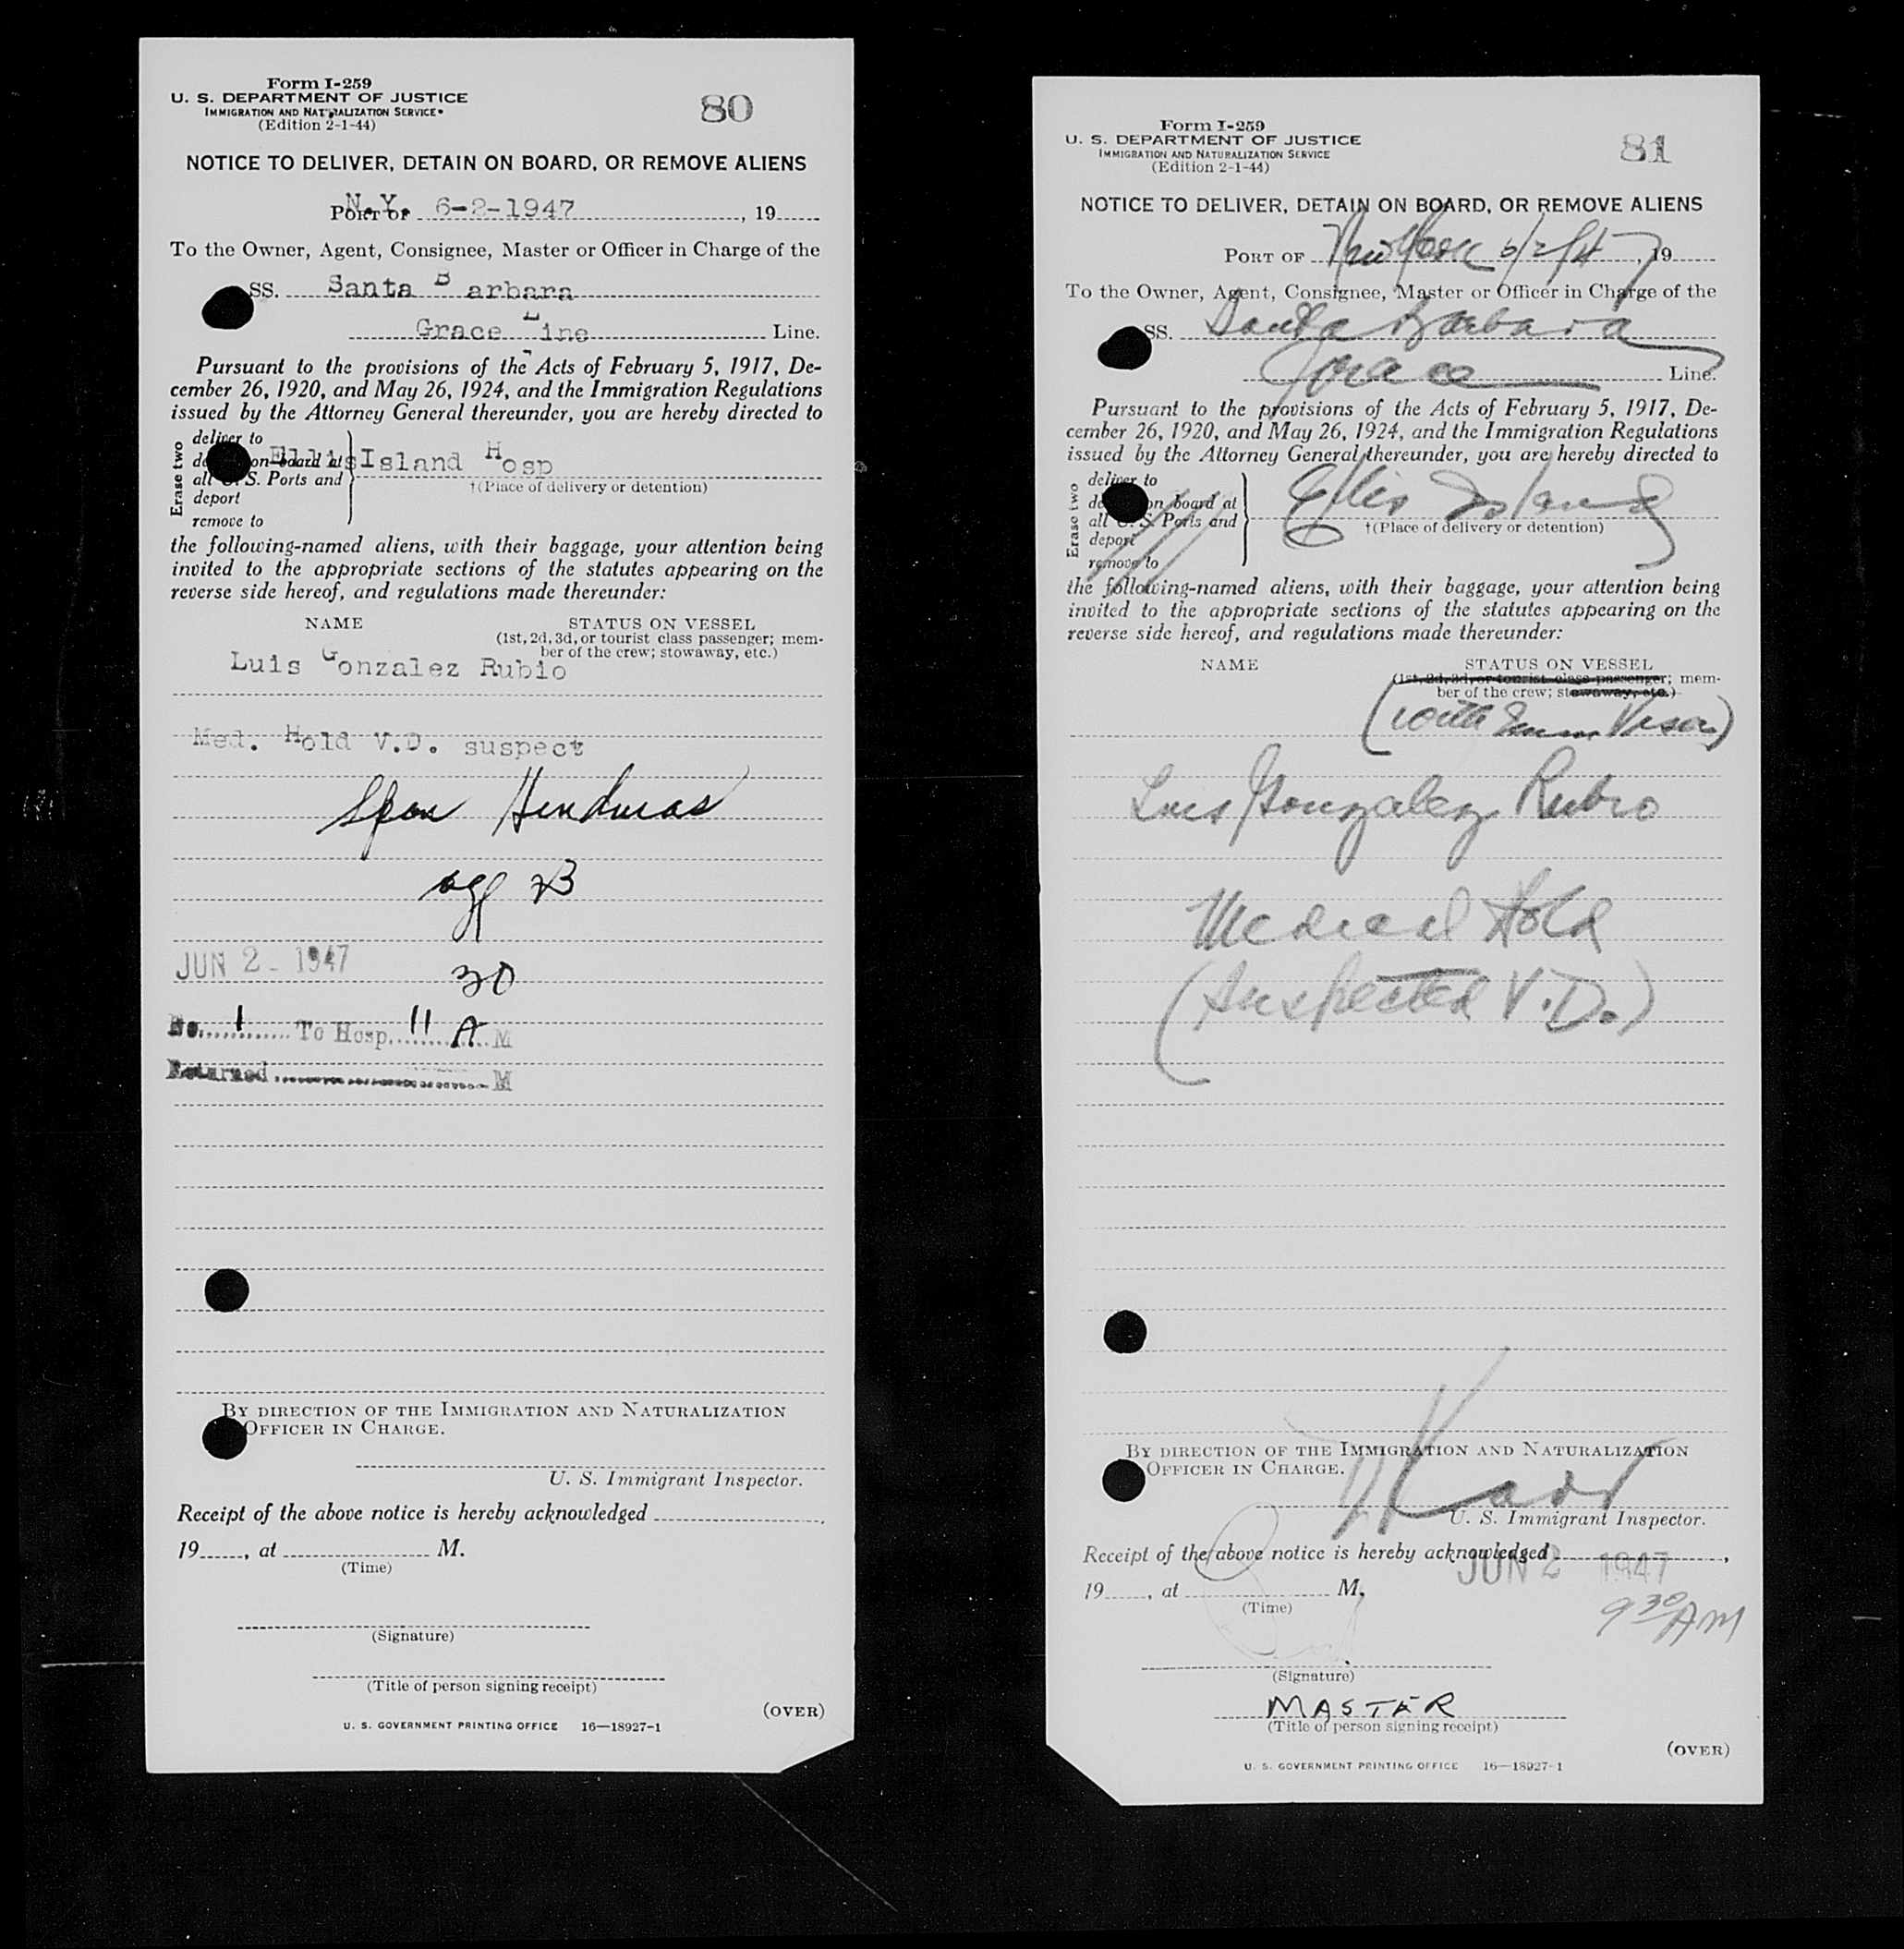 Form I-259
U. S. DEPARTMENT OF JUSTICE
IMMIGRATION AND NATURALIZATION SERVICE
(Edition 2-1-44)
80
NOTICE TO DELIVER, DETAIN ON BOARD, OR REMOVE ALIENS
PORT OF N.Y. 6-2-1947, 19
To the Owner, Agent, Consignee, Master or Officer in Charge of the
SS. Santa Barbara
Grace Line Line.
Pursuant to the provisions of the Acts of February 5, 1917, De-
cember 26, 1920, and May 26, 1924, and the Immigration Regulations
issued by the Attorney General thereunder, you are hereby directed to
Erase two
deliver to
on board at Ellis Island Hosp
all U. S. Ports and
†(Place of delivery or detention)
deport
remove to
the following-named aliens, with their baggage, your attention being
invited to the appropriate sections of the statutes appearing on the
reverse side hereof, and regulations made thereunder:
NAME STATUS ON VESSEL
(1st, 2d, 3d, or tourist class passenger; mem-
ber of the crew; stowaway, etc.)
Luis Gonzalez Rubio
Med. Hold V.D. suspect
Span Honduras
age 23
JUN 2 - 1947
30
No. 1 To Hosp. 11 A M
Returned M
BY DIRECTION OF THE IMMIGRATION AND NATURALIZATION
OFFICER IN CHARGE.
U. S. Immigrant Inspector.
Receipt of the above notice is hereby acknowledged ,
19 , at M.
(Time)
(Signature)
(Title of person signing receipt)
(OVER)
U. S. GOVERNMENT PRINTING OFFICE 16—18927-1
Form I-259
U. S. DEPARTMENT OF JUSTICE
IMMIGRATION AND NATURALIZATION SERVICE
(Edition 2-1-44)
81
NOTICE TO DELIVER, DETAIN ON BOARD, OR REMOVE ALIENS
PORT OF New York 6/2/47, 19
To the Owner, Agent, Consignee, Master or Officer in Charge of the
SS. Santa Barbara
Grace Line.
Pursuant to the provisions of the Acts of February 5, 1917, De-
cember 26, 1920, and May 26, 1924, and the Immigration Regulations
issued by the Attorney General thereunder, you are hereby directed to
Erase two
deliver to
on board at Ellis Island
all U. S. Ports and
†(Place of delivery or detention)
deport
remove to
the following-named aliens, with their baggage, your attention being
invited to the appropriate sections of the statutes appearing on the
reverse side hereof, and regulations made thereunder:
NAME STATUS ON VESSEL
(1st, 2d, 3d, or tourist class passenger; mem-
ber of the crew; stowaway, etc.)
(with Imm Visa)
Luis Gonzalez Rubio
Medical Hold
(Suspected V.D.)
BY DIRECTION OF THE IMMIGRATION AND NATURALIZATION
OFFICER IN CHARGE.
U. S. Immigrant Inspector.
Receipt of the above notice is hereby acknowledged ,
JUN 2 1947
19 , at M.
(Time)
9 30 AM
(Signature)
MASTER
(Title of person signing receipt)
(OVER)
U. S. GOVERNMENT PRINTING OFFICE 16—18927-1